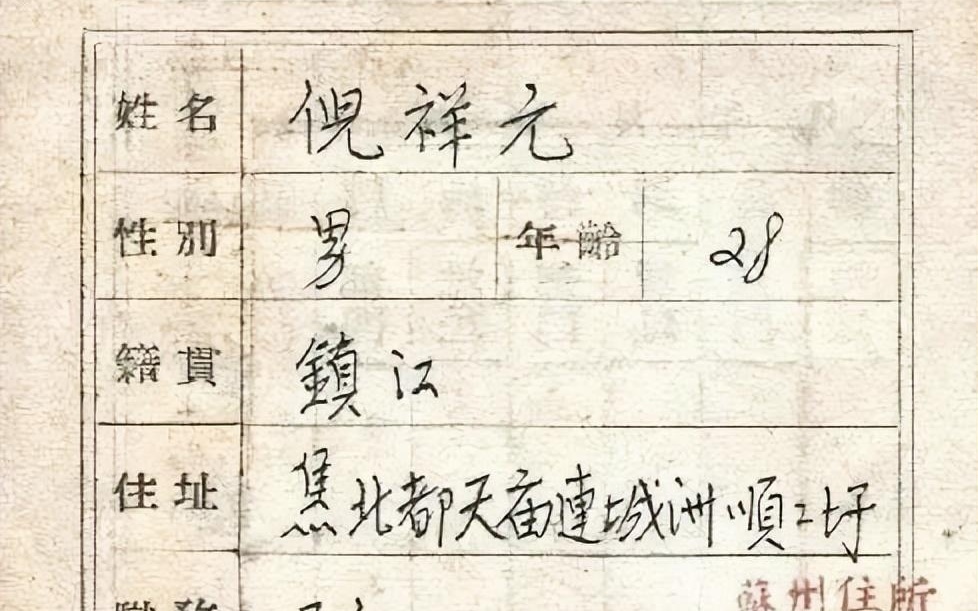 姓名 倪祥元
性別 男 年齡 28
籍貫 鎮江
住址 焦北都天庙連城洲順二圩
職務
蘇州住所